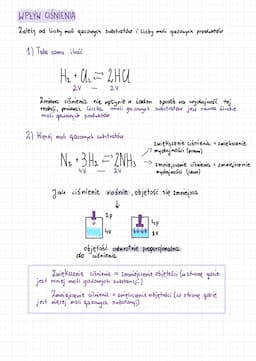 WPŁYW CIŚNIENIA
Zależy od liczby moli gazowych substratów i liczby moli gazowych produktów
1) Taka sama ilość
H₂ + Cl₂ ⇌ 2HCl
2V — 2V
Zmiana ciśnienia nie wpłynie w żaden sposób na wydajność tej
reakcji, ponieważ liczba moli gazowych substratów jest równa liczbie
moli gazowych produktów
2) Więcej moli gazowych substratów
N₂ + 3H₂ ⇌ 2NH₃
4V — 2V
zwiększenie ciśnienia = zwiększenie
wydajności (prawo)
zmniejszenie ciśnienia = zmniejszenie
wydajności (lewo)
Jak ciśnienie rośnie, objętość się zmniejsza
2p
4p
4V
2V
objętość odwrotnie proporcjonalna
do ciśnienia
Zwiększenie ciśnienia = zmniejszenie objętości (w stronę gdzie
jest mniej moli gazowych substancji)
Zmniejszenie ciśnienia = zwiększenie objętości (w stronę gdzie
jest więcej moli gazowych substancji)